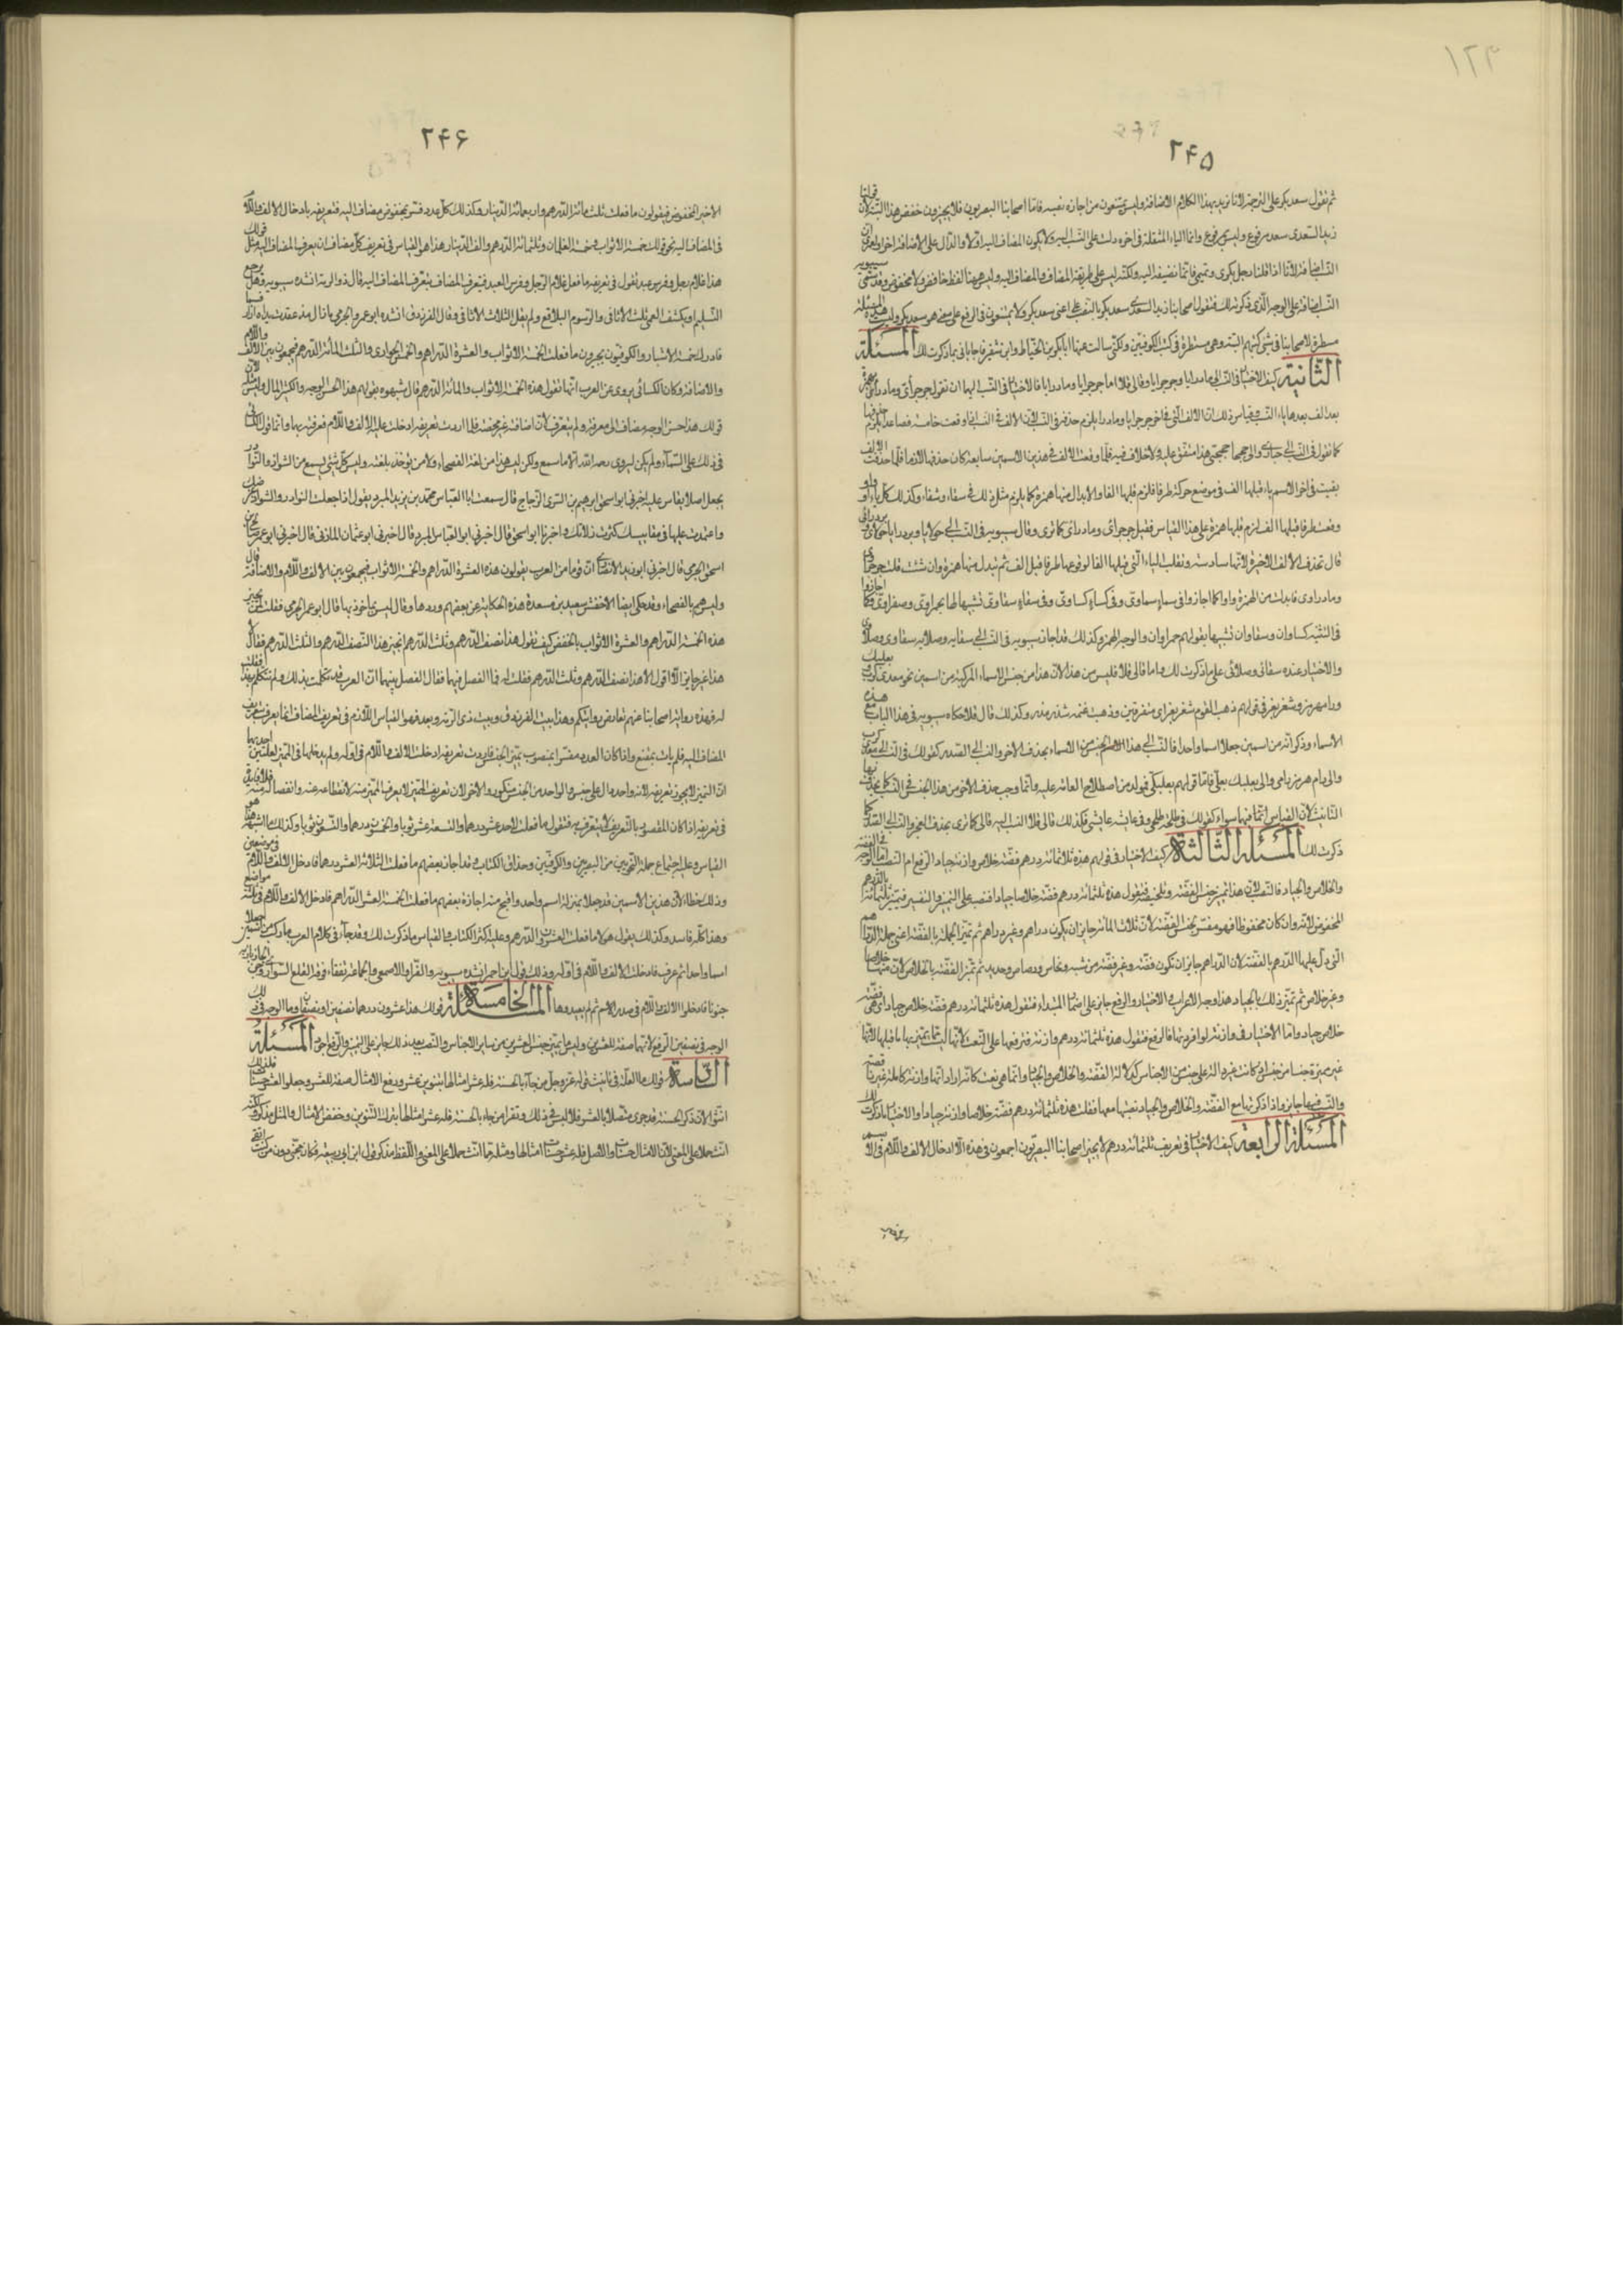 ۱۲۹
۲۴۵
ثم نقول سعد بكر على الترجمة لانا نريد بهذا الكلام الاضافة وليس يمتنعون من اجازه نفسه فاما اصحابنا البصريون فلا يجيزون خفض هذا البتة لان قولنا
زيد السعدى سعد مرفوع وليس بمرفوع وانما الياء المثقلة فى اخره دلت على النسب اليه ولا يكون المضاف اليه اولا والدال على الاضافة اخرا
النسب اضافة لانا اذا قلنا رجل بكرى وتميمى فانما نضيفه اليه ولكنه ليس على طريقة المضاف والمضاف اليه وليس ههنا لفظ خافض ولا مخفوض وقد سمى سيبويه
النسب اضافة على الوجه الذى ذكرت لك فنقول اصحابنا زيد السعدى سعد بكر بالنصب على اعنى سعد بكر ولا يمتنعون فى الرفع على معنى هو سعد بكر وليست هذه المسئلة
مسطرة لاصحابنا فى شئ من كتبهم البتة وهى مسطرة فى كتب الكوفيين ولكنى سالت عنها ابا بكر بن الخياط وابن شقير فاجابانى بما ذكرت لك المسئلة
الثانية كيف الاختيار فى النسب الى مادرايا وجرجرايا وقالى قلا اما جرجرايا ومادرايا فالاختيار فى النسب اليهما ان تقول جرجرائى ومادرائى بهمزة
بعد الف بعدها ياء النسب وقياس ذلك ان الالف التى فى اخر جرجرايا ومادرايا يلزم حذفها فى النسب لان الالف فى النسب اذا وقعت خامسة فصاعدا يلزم حذفها
كما تقول فى النسب الى حبارى والى جحجبى جحجبى هذا متفق عليه ولا خلاف فيه فلما وقعت الالف فى هذين الاسمين سابعة كان حذفها لازما فلما حذفت الالف
بقيت فى اخر الاسم ياء قبلها الف فى موضع حركة طرفا فلزم قلبها الفا والابدال منها همزة كما يلزم مثل ذلك فى سقاء وشفاء وكذلك كل ياء او واو
وقعت طرفا قبلها الف لزم قلبها همزة على هذا القياس فقيل جرجرائى ومادرائى كما ترى وقال سيبويه فى النسب الى حولايا وبردرايا حولائى وبردرائى
قال تحذف الالف الاخيرة لانها سادسة وتقلب الياء التى قبلها الفا لوقوعها طرفا قبل الف ثم تبدل منها همزة وان شئت قلت جرجراوى
ومادراوى فابدلت من الهمزة واوا كما اجازوا فى سماء سماوى وفى كساء كساوى وفى سقاء سقاوى تشبيها لها بحمراوى وصفراوى وكما اجازوا
فى التثنية كساوان وسقاوان تشبيها بقولهم حمراوان والوجه الهمز وكذلك قد اجاز سيبويه فى النسب الى سقاية وصلاية سقاوى وصلاوى
والاختيار عنده سقائى وصلائى على ما ذكرت لك واما قالى قلا فليس من هذا لان هذا من جنس الاسماء المركبة من اسمين نحو معدى كرب وبعلبك
ورامهرمز وشغر بغر فى قولهم ذهب القوم شغر بغر اى متفرقين وذهبت غنمه شذر مذر وكذلك قال قلا حكاه سيبويه فى هذا الباب مع هذه
الاسماء وذكر انه من اسمين جعلا اسما واحدا فالنسب الى هذا الجنس من الاسماء بحذف الاخر والنسب الى الصدر كقولك فى النسب الى معدى كرب
والى رام هرمز رامى والى بعلبك بعلى فاما قولهم بعلبكى فمولد من اصطلاح العامة عليه وانما وجب حذف الاخر من هذا الجنس فى النسب كما تحذف
التانيث لان القياس فيهما سواء كقولك فى طلحة طلحى وفى عايشة عايشى فكذلك قالى قلا النسب اليه قالى كما ترى بحذف العجز والنسب الى الصدر كما
ذكرت لك المسئلة الثالثة كيف الاختيار فى قولهم هذه ثلاثمائة درهم فضة خلاص وازنة جياد الرفع ام النصب اما الوجه فى الفضة
والخلاص والجياد فالنصب لان هذا تمييز جنس الفضة وتلخيصه فتقول هذه ثلثمائة درهم فضة خلاصا جيادا فتنصب على التمييز والتفسير فتميز ثلثمائة بالدرهم
المخفوض لانه وان كان مخفوظا فهو مفسر بجنس الفضة لان ثلاث المائة جايز ان يكون دراهم وغير دراهم ثم تميز الجملة بالفضة اعنى جملة الدراهم
التى دل عليها الدرهم بالفضة لان الدراهم جايز ان تكون فضة وغير فضة من شبه ونحاس ورصاص وحديد ثم تميز الفضة بالخلاص لان منها خلاصا
وغير خلاص ثم تميز ذلك بالجياد هذا وجه الاعراب فى الاختيار والرفع جايز على اضمار المبتداء فتقول هذه ثلثمائة درهم فضة خلاص جياد اى هى فضة
خلاص جياد واما الاختيار فى وازنة لو افردتها فالرفع فتقول هذه ثلثمائة درهم وازنة فترفعها على النعت لانها ليست مما يتميز بها ما قبلها لانها
غير مميزة جنسا من جنس اذ كانت غير دالة على جنس من الاجناس كدلالة الفضة والخلاص والجياد وانما هى نعت كانه اراد انها وازنة كاملة غير ناقصة
والنصب فيها جايز واذا ذكرتها مع الفضة والخلاص والجياد نصبتها معها فقلت هذه ثلثمائة درهم فضة خلاصا وازنة جيادا والاختيار ما ذكرت لك
المسئلة الرابعة كيف الاختيار فى تعريف ثلثمائة درهم لا يجيز اصحابنا البصريون اجمعون فى هذه الا ادخال الالف واللام فى الاسم
۲۴۶
الاخير المخفوض فيقولون ما فعلت ثلث مائة الدرهم واربعمائة الدينار وكذلك كل عدد فسر بمخفوض مضاف اليه فتعريفه بادخال الالف واللام
فى المضاف اليه نحو قولك خمسة الاثواب وخمسة الغلمان وثلثمائة الدرهم والف الدينار هذا هو القياس فى تعريف كل مضاف ان يعرف بالمضاف اليه مثل قولك
هذا غلام رجل وفرس عبد تقول فى تعريفه ما فعل غلام الرجل وفرس العبد فتعرف المضاف بتعرف المضاف اليه قال ذو الرمة انشده سيبويه وهل يرجع
التسليم او يكشف العمى ثلث الاثافى والرسوم البلاقع ولم يقل الثلاث الاثافى وقال الفرزدق انشده ابو عمر والجرمى ما زال مذ عقدت يداه ازاره فسما
فادرك خمسة الاشبار والكوفيون يجيزون ما فعلت الخمسة الاثواب والعشرة الدراهم والخمس الجوارى والثلث المائة الدرهم فيجمعون بين الالف واللام
والاضافة وكان الكسائى يروى عن العرب انها تقول هذه الخمسة الاثواب والمائة الدرهم قال شبهوه بقولهم هذا الحسن الوجه والكثير المال وليس مثله لان
قولك هذا حسن الوجه مضاف الى معرفة ولم يتعرف لان اضافته غير محضة فلما اردت تعريفه ادخلت عليه الالف واللام فعرفته بهما وانما قول الكسائى
فى ذلك على السماء ولم يكن ليروى رحمه الله الا ما سمع ولكن ليس هذا من لغة الفصحاء ولا من يؤخذ بلغته وليس كل شئ يسمع من الشواذ والنوادر
يجعل اصلا يقاس عليه اخبرنى ابو اسحق ابرهيم بن السرى الزجاج قال سمعت ابا العباس محمد بن يزيد المبرد يقول اذا جعلت النوادر والشواذ غرضك
واعتمدت عليها فى مقاييسك كثرت زلاتك واخبرنا ابو اسحق قال اخبرنى ابو العباس المبرد قال اخبرنى ابو عثمان المازنى قال اخبرنى ابو عمر صالح بن
اسحق الجرمى قال اخبرنى ابو زيد الانصارى ان قوما من العرب يقولون هذه العشرة الدراهم والخمسة الاثواب فيجمعون بين الالف واللام والاضافة قال
وليس هم بالفصحاء وقد حكى ايضا الاخفش سعيد بن مسعدة هذه الحكاية عن بعضهم وردها وقال ليس بماخوذ بها قال ابو عمر الجرمى فقلت لمن يجيز
هذه الخمسة الدراهم والعشرة الاثواب بالخفض كيف تقول هذا نصف الدرهم وثلث الدرهم اتجيز هذا النصف الدرهم والثلث الدرهم فقال لا
هذا غير جايز الا اقول الا هذا نصف الدرهم وثلث الدرهم فقلت له فما الفصل فيهما فقال الفصل بينهما ان العرب قد تكلمت بذلك ولم تتكلم بهذا فقلت
له فهذه رواية اصحابنا عنهم تعارض روايتكم وهذا بيت الفرزدق وبيت ذى الرمة وبعد فهو القياس اللازم فى تعريف المضاف انما يعرف بتعريف
المضاف اليه فلم يات بمقنع واذا كان العدد مفسرا بمنصوب تميز الجنس فاردت تعريفه ادخلت الالف واللام فى اوله ولم يدخلهما فى التمييز لعلتين احديهما
ان التمييز لا يجوز تعريفه لانه واحد دال على جنس والواحد من الجنس منكور والاخر لان تعريف المميز لا يعرف المميز منه لانقطاعه عنه وانفصاله منه فلا فايدة
فى تعريفه اذا كان المقصود بالتعريف لا يتعرف به فتقول ما فعلت الاحد عشر درهما والتسعة عشر ثوبا والخمسون درهما والتسعون ثوبا وكذلك ما اشبهه هذا هو
القياس وعليه اجتماع جملة النحويين من البصريين والكوفيين وحذاق الكتاب وقد اجاز بعضهم ما فعلت الثلاثة العشر درهما فادخل الالف واللام فى موضعين
وذلك خطا لان هذين الاسمين قد جعلا بمنزلة اسم واحد واقبح منه اجازة بعضهم ما فعلت الخمسة العشر الدراهم فادخل الالف واللام فى ثلثة مواضع
وهذا كله فاسد وكذلك يقول هؤلاء ما فعلت العشرون الدرهم وعليه اكثر الكتاب والقياس ما ذكرت لك وقد جاء فى كلام العرب ما ركب من اسمين جعلا
اسما واحدا ثم عرف فادخلت الالف واللام فى اوله وذلك قول ابن احمر انشده سيبويه والفراء والاصمعى والجماعة تفقأ فوقه القلع السوارى وجن الخازباز به
جنونا فادخلوا الالف واللام فى صدر الاسم ثم لم يعيدوها المسئلة الخامسة قولك هذا عشرون درهما نصفين او نصفان وما الوجه فى ذلك
الوجه فى نصفين الرفع لانهما صفة للعشرين وليس مما يتميز جنس العشرين من ساير الاجناس والنصب بعيد ذلك جايز على التمييز والرفع اجود المسئلة
السادسة قولك ما العلة فى تانيث قوله عز وجل من جاء بالحسنة فله عشر امثالها بتنوين عشر ورفع الامثال صفة للعشر وجعلوا العشر حسنات فلذلك
انثوا لان ذكر الحسنة قد جرى متصلا بالعشر فلا لبس فى ذلك وتقرا من جاء بالحسنة فله عشر امثالها بترك التنوين وخفض الامثال والمثل مذكر ولكنه
انث حملا على المعنى لان الامثال حسنات والاصل فله عشر حسنات امثالها ومثله مما انث حملا على المعنى واللفظ مذكر قول ابن ابى ربيعة فكان مجنى دون من كنت اتقى